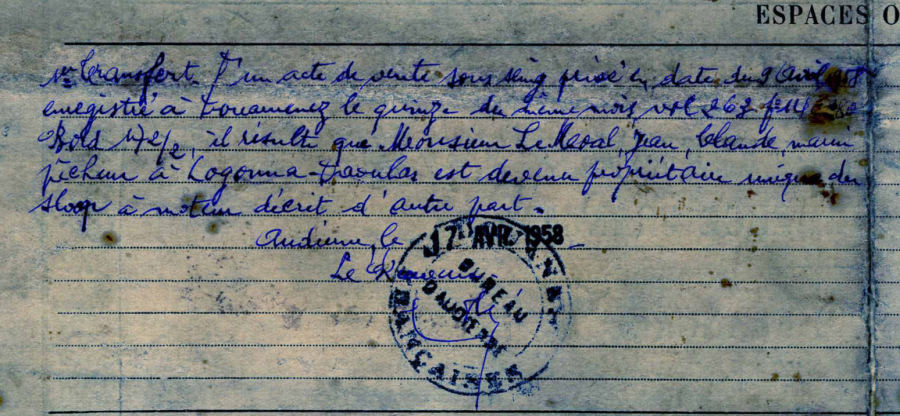 ESPACES O
Transfert. D'un acte de vente sous seing privé en date du 9 Avril
enregistré à Douarnenez le quinze du même mois vol 262
Bord 172/2, il résulte que Monsieur Jean, Claude, marin
pêcheur à Logonna-Daoulas est devenu propriétaire unique du
sloop à moteur décrit d'autre part.
Audierne, le 17 AVR 1958
Le
BUREAU
D'AUDIERNE